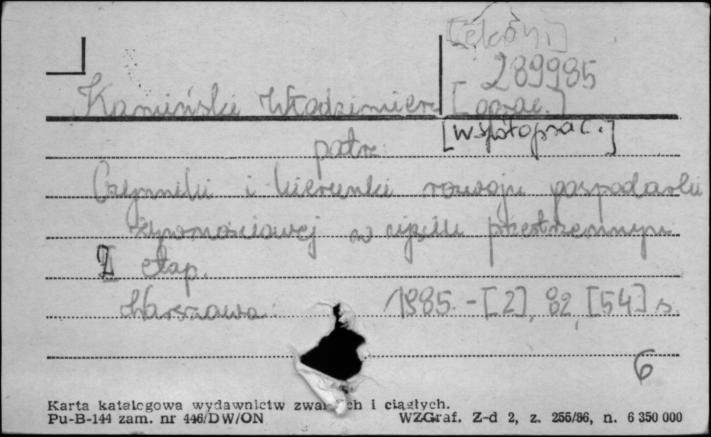 [ekon]
289985
Kamiński Włodzimierz [oprac.]
[współoprac.]
patrz
Czynniki i kierunki rozwoju gospodarki
żywnościowej w ujęciu przestrzennym
I etap.
Warszawa 1985. - [2], 82, [54] s.
6
Karta katalogowa wydawnictw zwartych i ciągłych.
Pu-B-144 zam. nr 446/DW/ON WZGraf. Z-d 2, z. 255/86, n. 6 350 000